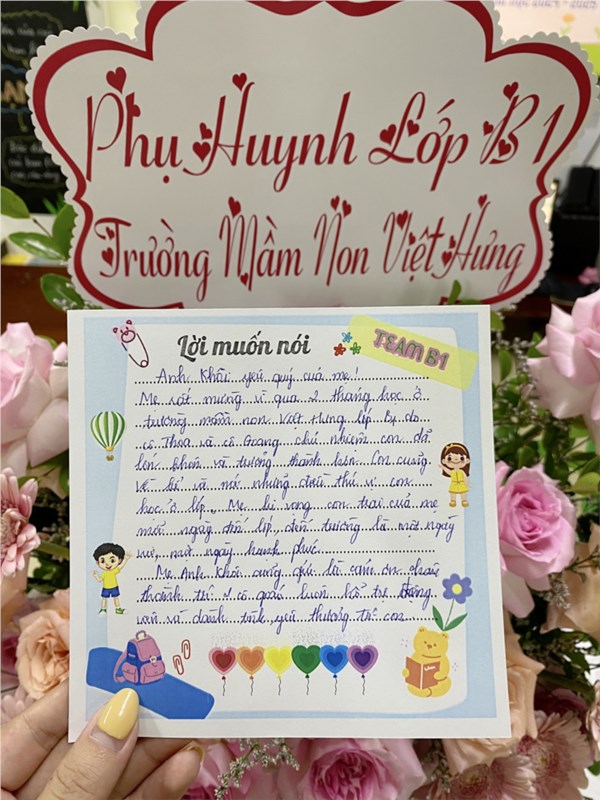 Phụ Huynh Lớp B1
Trường Mầm Non Việt Hưng
Lời muốn nói
TEAM B1
Anh Khôi yêu quý của mẹ!
Mẹ rất mừng vì qua 2 tháng học ở
trường mầm non Việt Hưng lớp B1 do
cô Thoa và cô Giang chủ nhiệm con đã
lớn khôn và trưởng thành hơn. Con cũng
về kể và nói những điều thú vị con
học ở lớp. Mẹ hi vọng con trai của mẹ
mỗi ngày đến lớp, đến trường là một ngày
vui, một ngày hạnh phúc
Mẹ Anh Khôi cũng gửi lời cảm ơn chân
thành tới 2 cô giáo luôn hỗ trợ động
viên và dành tình yêu thương tới con